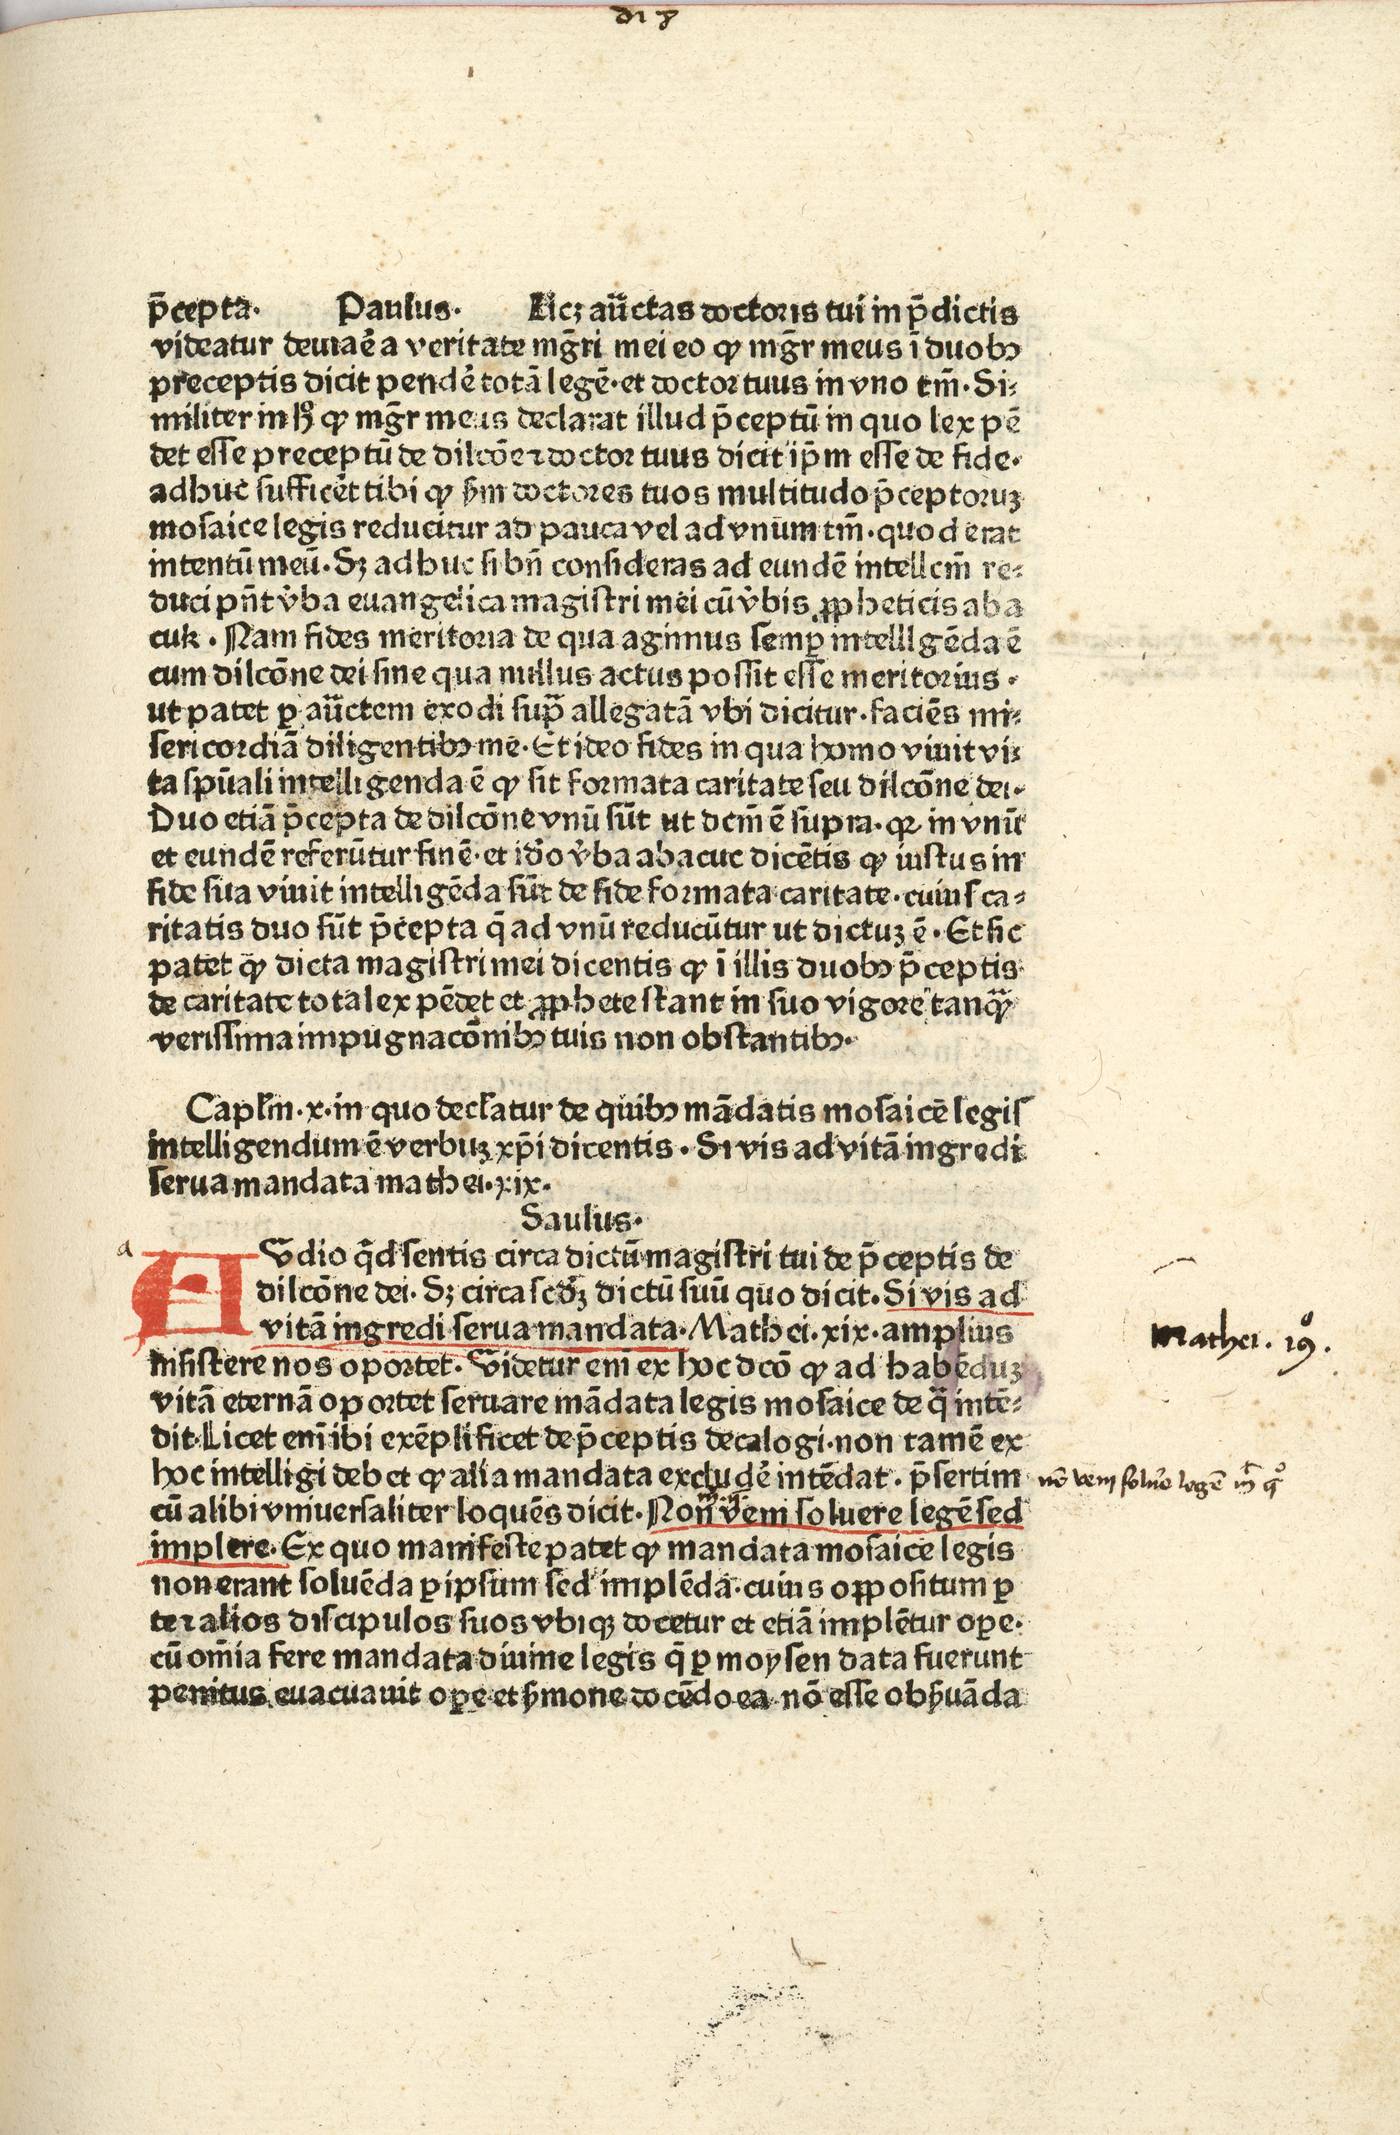 p̄cepta. Paulus. Licꝫ au̅ctas doctoris tui in p̄dictis
videatur deuiaē a veritate mḡri mei eo ꝙ mḡr meus ī duobꝰ
preceptis dicit pendē̄ totā legē. et doctor tuus in vno tm̄. Si⸗
militer in hͦ ꝙ mḡr meus declarat illud p̄ceptū in quo lex pē
det esse preceptū de dilcōe ⁊ doctor tuus dicit ip̄m esse de fide.
adhuc sufficēt tibi ꝙ s̄m doctores tuos multitudo p̄ceptoruꝫ
mosaice legis reducitur ad pauca vel ad vnum tm̄. quod erat
intentū meū. Sꝫ adhuc si bn̄ consideras ad eundē intellcm̄ re⸗
duci pn̄t v̄ba euangelica magistri mei cū v̄bis ꝓpheticis aba
cuk. Nam fides meritoria de qua agimus semꝑ intelligēda ē
cum dilcōne dei sine qua nullus actus possit esse meritorius.
ut patet ꝑ au̅ctem exodi supᷓ allegatā vbi dicitur. faciēs mi⸗
sericordiā diligentibꝰ me. Et ideo fides in qua homo viuit vi⸗
ta spūali intelligenda ē ꝙ sit formata caritate seu dilcōne dei.
Duo etiā p̄cepta de dilcōne vnū sūt ut dcm̄ ē supra. qꝛ in vnū
et eundē referūtur finē. et idͦo v̄ba abacuc dicētis ꝙ iustus in
fide sua viuit intelligēda sūt de fide formata caritate. cuius ca⸗
ritatis duo sūt p̄cepta q̄ ad vnū reducūtur ut dictuꝫ ē. Et sic
patet ꝙ dicta magistri mei dicentis ꝙ ī illis duobꝰ p̄ceptis
de caritate tota lex pēdet et ꝓphete stant in suo vigore tanqᷓ
verissima impugnacōnibꝰ tuis non obstantibꝰ.
Caplm̄. x. in quo declaᷓtur de quibꝰ mādatis mosaice legis
intelligendum ē verbuꝫ xp̄i dicentis. Si vis ad vitā ingredi
serua mandata mathei. xix.
Saulus.
a
AVdio qͥd sentis circa dictū magistri tui de p̄ceptis de
dilcōne dei. Sꝫ circa scd̄ꝫ dictū suū quo dicit. Si vis ad
vitā ingredi serua mandata. Mathei. xix. amplius
Mathei. 19ͦ.
insistere nos oportet. Videtur enī ex hoc dcō ꝙ ad habēduꝫ
vitā eternā oportet seruare mādata legis mosaice de qᷓ intē⸗
dit. Licet enī ibi exēplificet de p̄ceptis decalogi. non tamē ex
hoc intelligi debet ꝙ alia mandata excludē̄ intēdat. p̄sertim
nō veni soluē̄ legē
cū alibi vniuersaliter loquēs dicit. Non veni soluere legē sed
implere. Ex quo manifeste patet ꝙ mandata mosaice legis
non erant soluēda ꝑ ipsum sed implēda. cuius oꝓpositum ꝑ
te ⁊ alios discipulos suos vbiqꝫ docetur et etiā implētur oꝑe.
cū om̄ia fere mandata diuine legis q̄ ꝑ moysen data fuerunt
penitus euacuauit oꝑe et s̄mone docēdo ea nō esse obs̄uāda